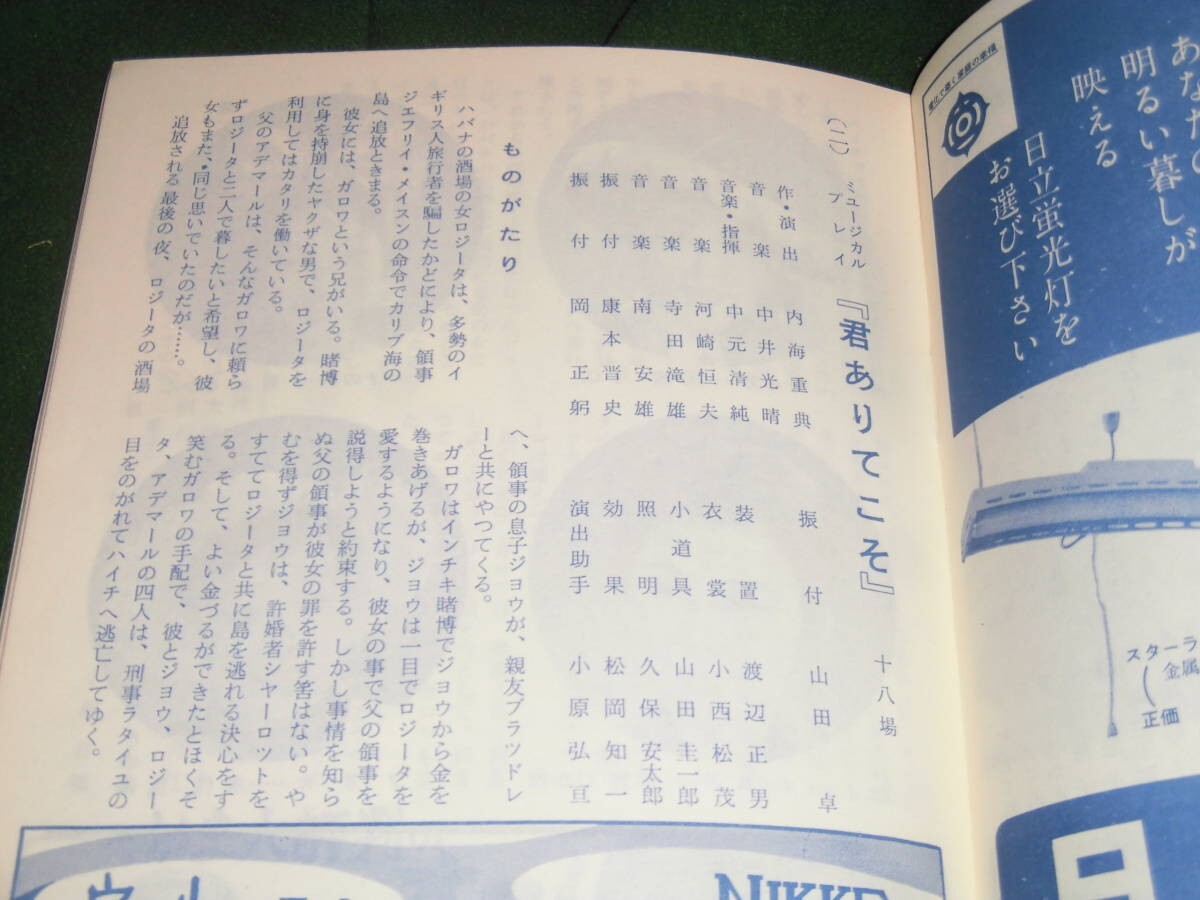 あなたの
明るい暮しが
映える
日立蛍光灯を
お選び下さい
スターラ
金属
正価
日
(二) ミュージカル
プレイ
『君ありてこそ』 十八場
作・演出 内海重典
音楽 中井光晴
音楽・指揮 中元清純
音楽 河崎恒夫
音楽 寺田滝雄
音楽 南安雄
振付 康本晋史
振付 岡正躬
振付 山田卓
装置 渡辺正男
衣裳 小西松茂
小道具 山田圭一郎
照明 久保安太郎
効果 松岡知一
演出助手 小原弘亘
ものがたり
ハバナの酒場の女ロジータは、多勢のイ
ギリス人旅行者を騙したかどにより、領事
ジエフリイ・メイスンの命令でカリブ海の
島へ追放ときまる。
彼女には、ガロワという兄がいる。賭博
に身を持崩したヤクザな男で、ロジータを
利用してはカタリを働いている。
父のアデマールは、そんなガロワに頼ら
ずロジータと二人で暮したいと希望し、彼
女もまた、同じ思いでいたのだが……。
追放される最後の夜、ロジータの酒場
へ、領事の息子ジョウが、親友ブラツドレ
ーと共にやつてくる。
ガロワはインチキ賭博でジョウから金を
巻きあげるが、ジョウは一目でロジータを
愛するようになり、彼女の事で父の領事を
説得しようと約束する。しかし事情を知ら
ぬ父の領事が彼女の罪を許す筈はない。や
むを得ずジョウは、許婚者シャーロツトを
すててロジータと共に島を逃れる決心をす
る。そして、よい金づるができたとほくそ
笑むガロワの手配で、彼とジョウ、ロジー
タ、アデマールの四人は、刑事ラタイユの
目をのがれてハイチへ逃亡してゆく。
NIKKE